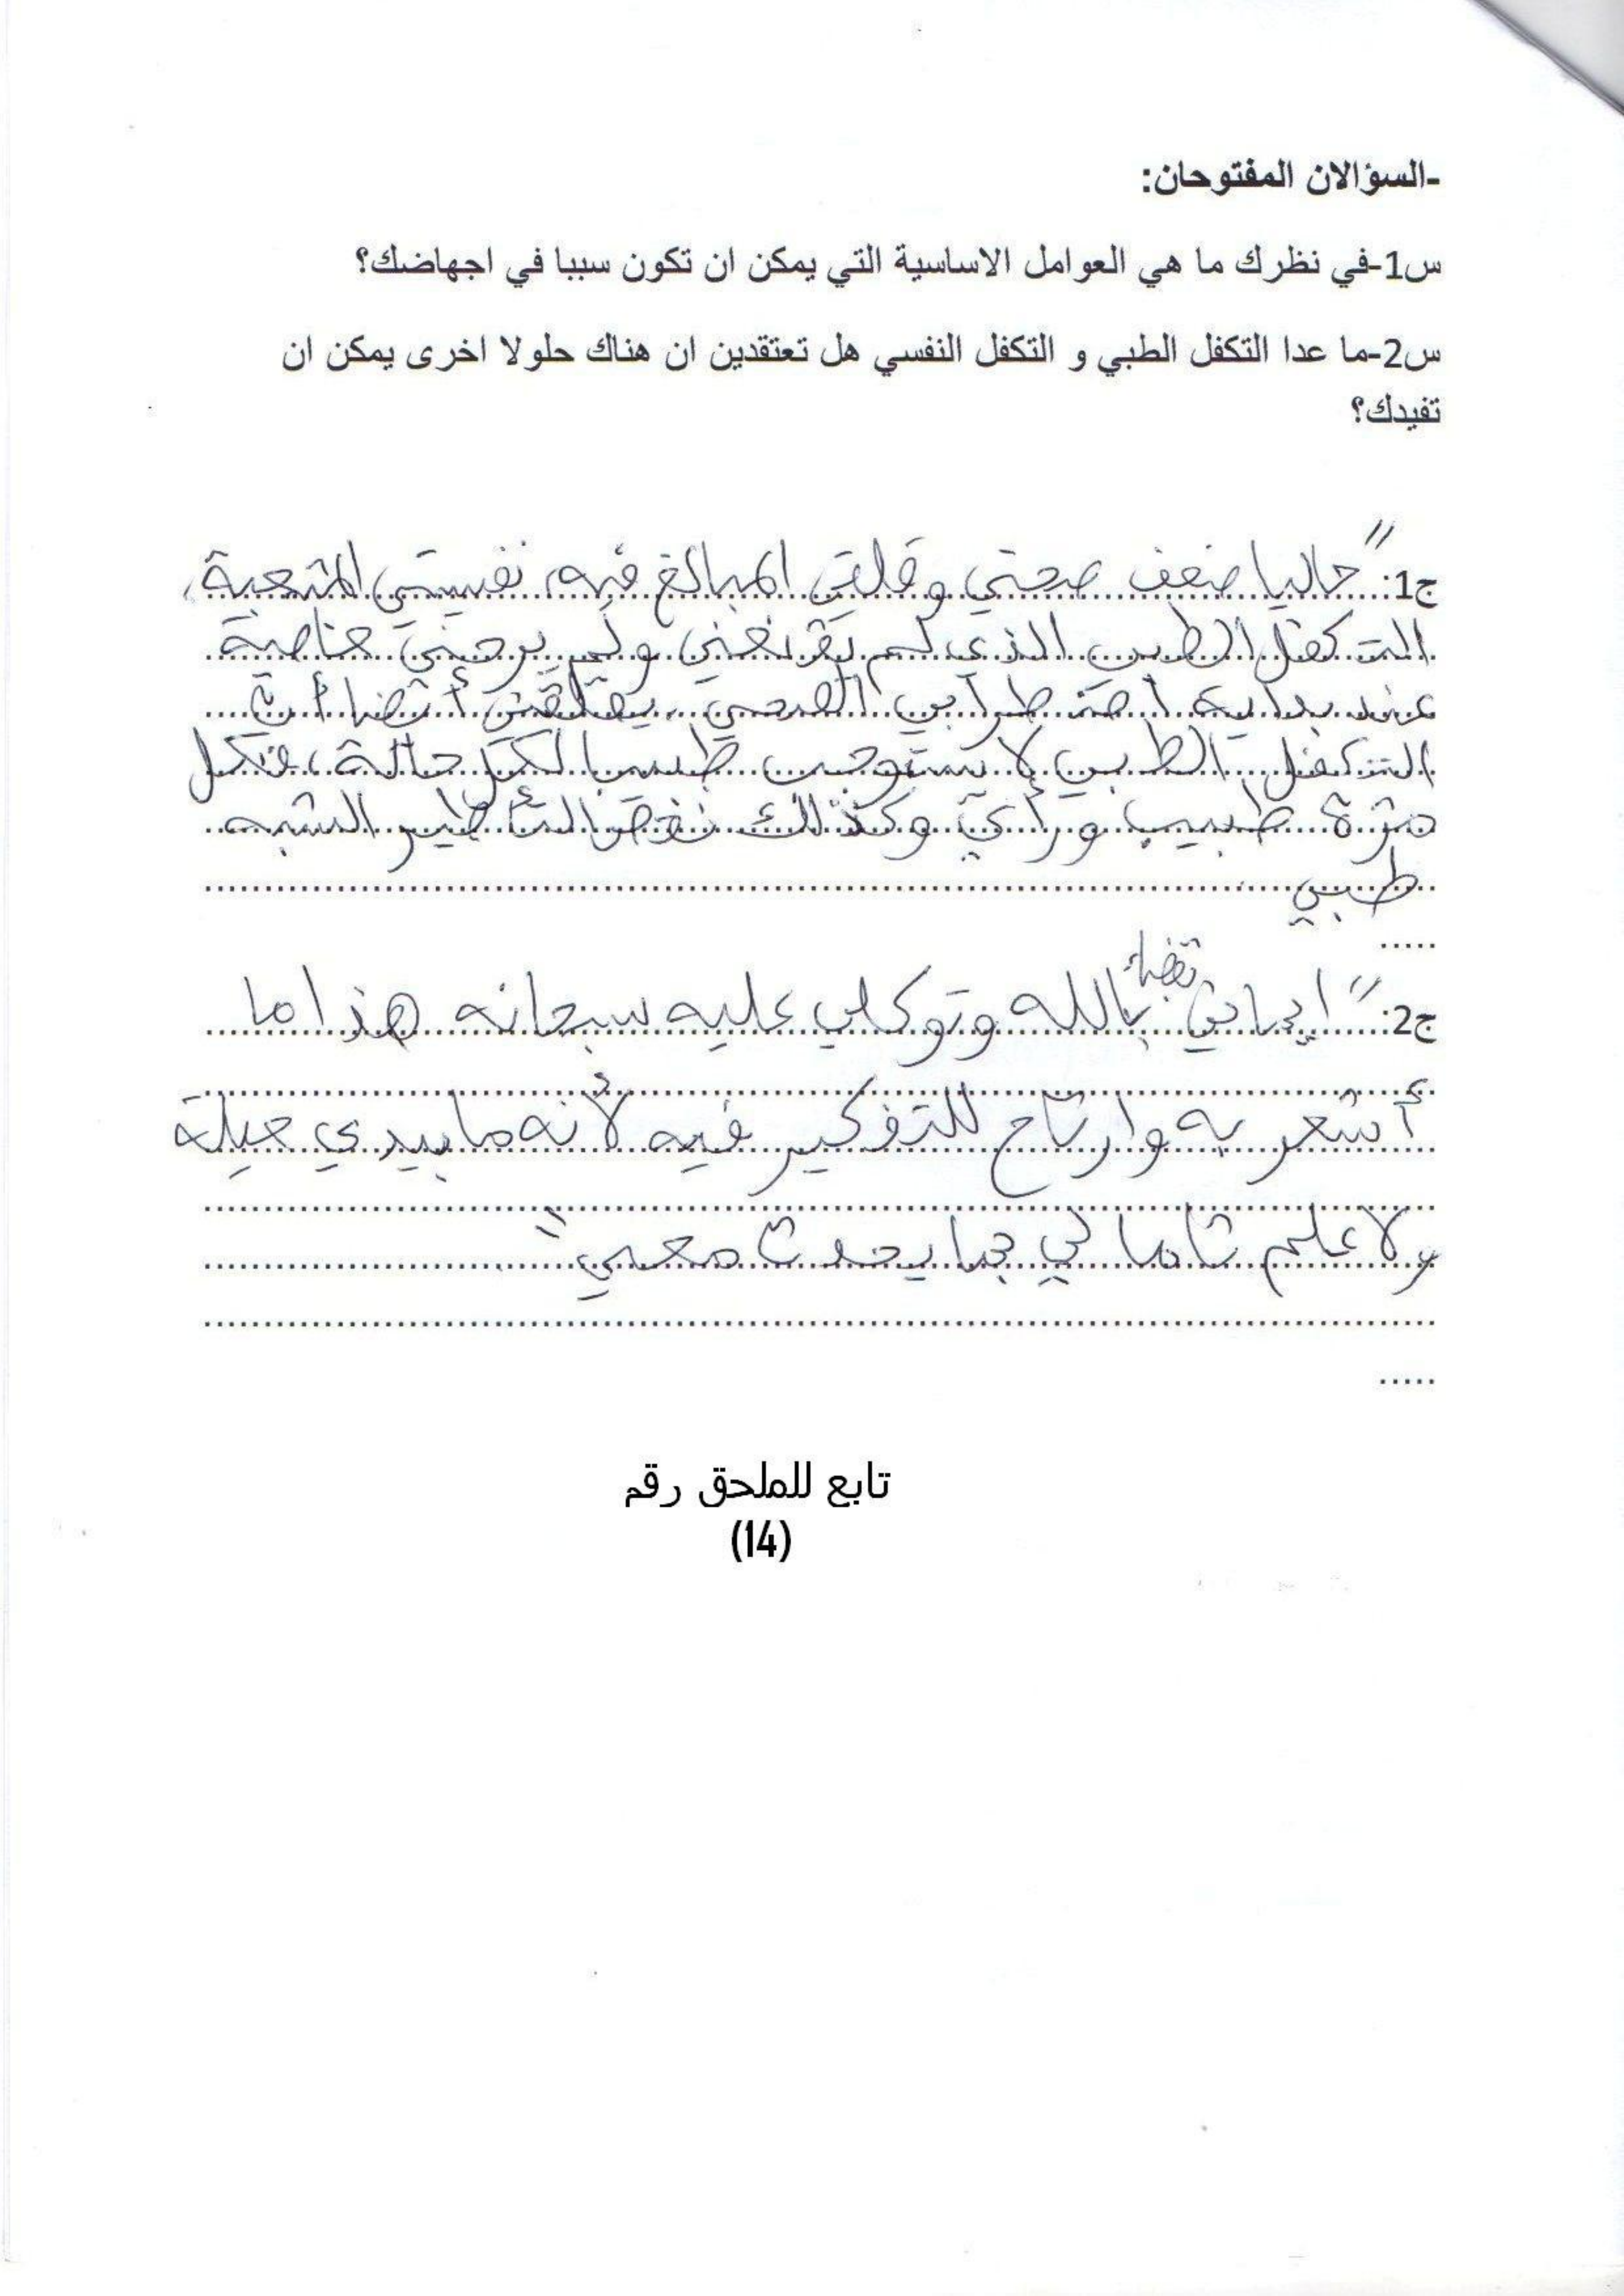 -السؤالان المفتوحان:
س1-في نظرك ما هي العوامل الاساسية التي يمكن ان تكون سببا في اجهاضك؟
س2-ما عدا التكفل الطبي و التكفل النفسي هل تعتقدين ان هناك حلولا اخرى يمكن ان
تفيدك؟
ج1: "حاليا ضعف صحتي وقلقي المبالغ فيه، نفسيتي المتعبة،
التكفل الطبي الذي لم يقنعني ولم يرحني خاصة
عند بداية اضطرابي الصحي، يقلقني أيضا أن
التكفل الطبي لا يستوجب طبيبا لكل حالة، فكل
مرة طبيب ورأي وكذلك نقص التأطير الشبه
طبي
ج2: "إيماني ثقتي بالله وتوكلي عليه سبحانه هذا ما
أشعر به وارتاح للتفكير فيه لأنه ما بيدي حيلة
ولا علم تاما لي بما يحدث معي"
تابع للملحق رقم
(14)